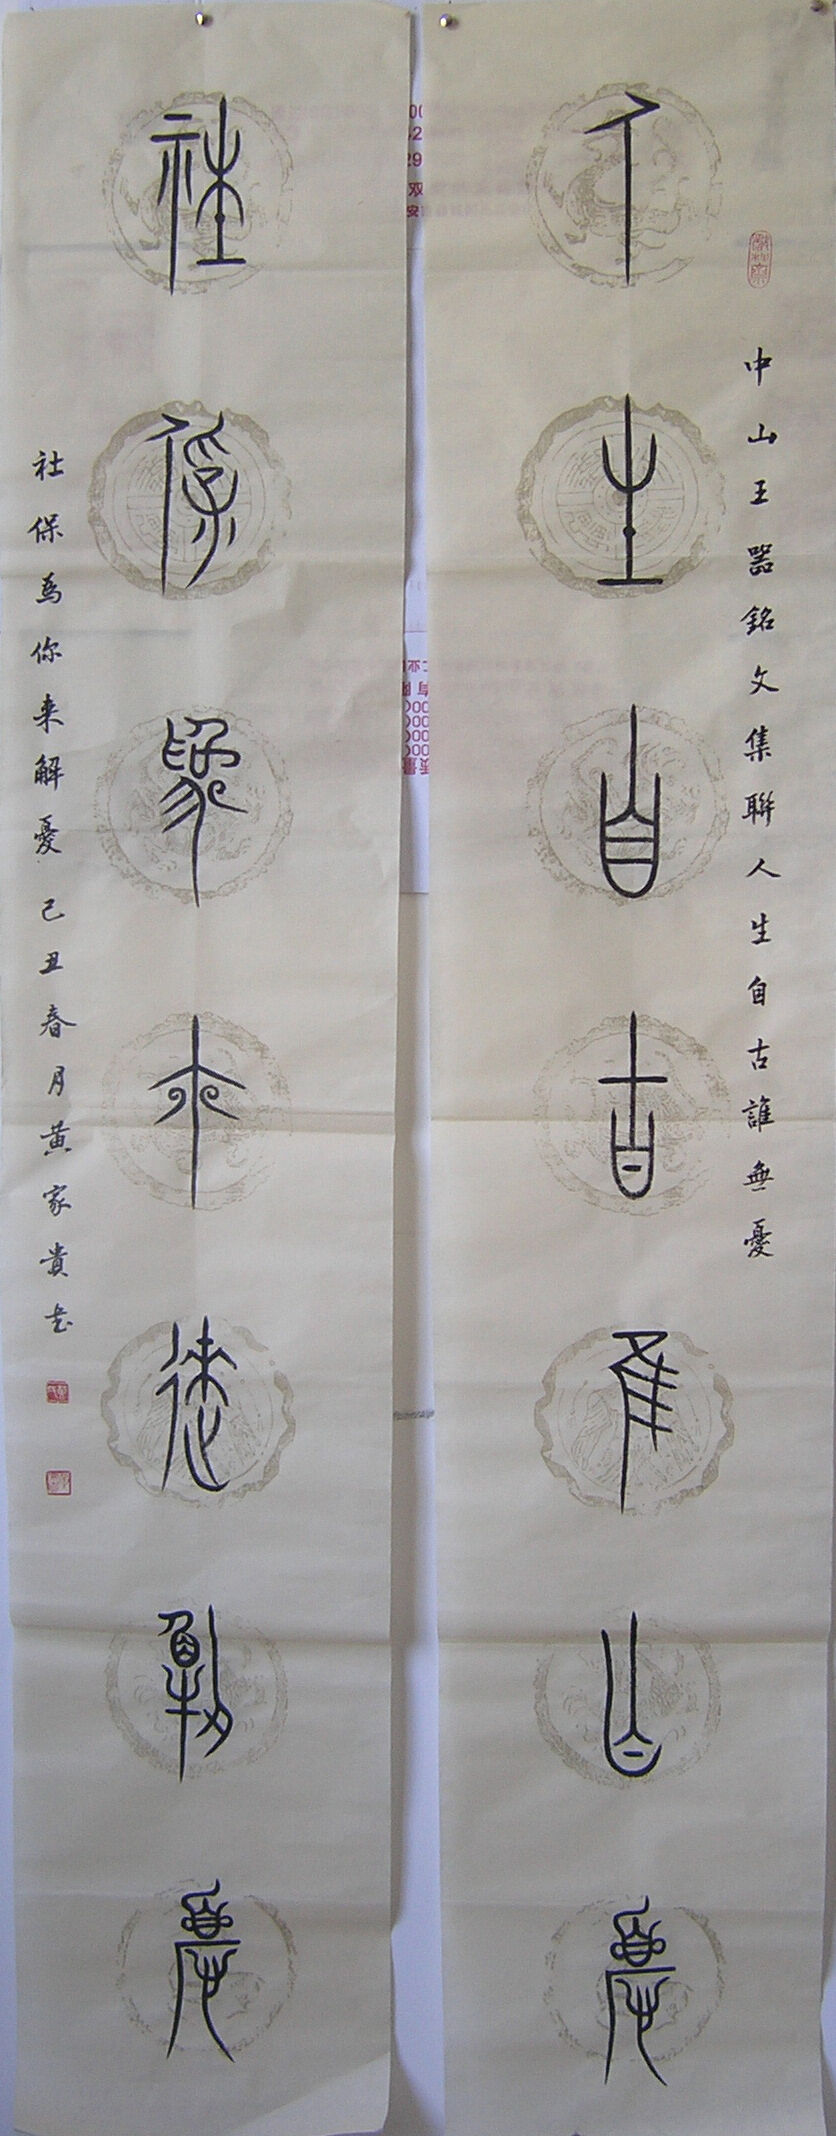 中山王器銘文集聯人生自古誰無憂
人生自古隹亡憂
社保為尒逨解憂
社保為你来解憂己丑春月黃家貴书